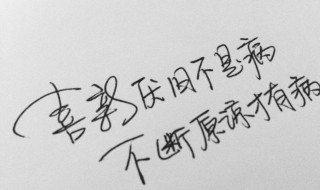 喜新厌旧不是病
不断原谅才有病